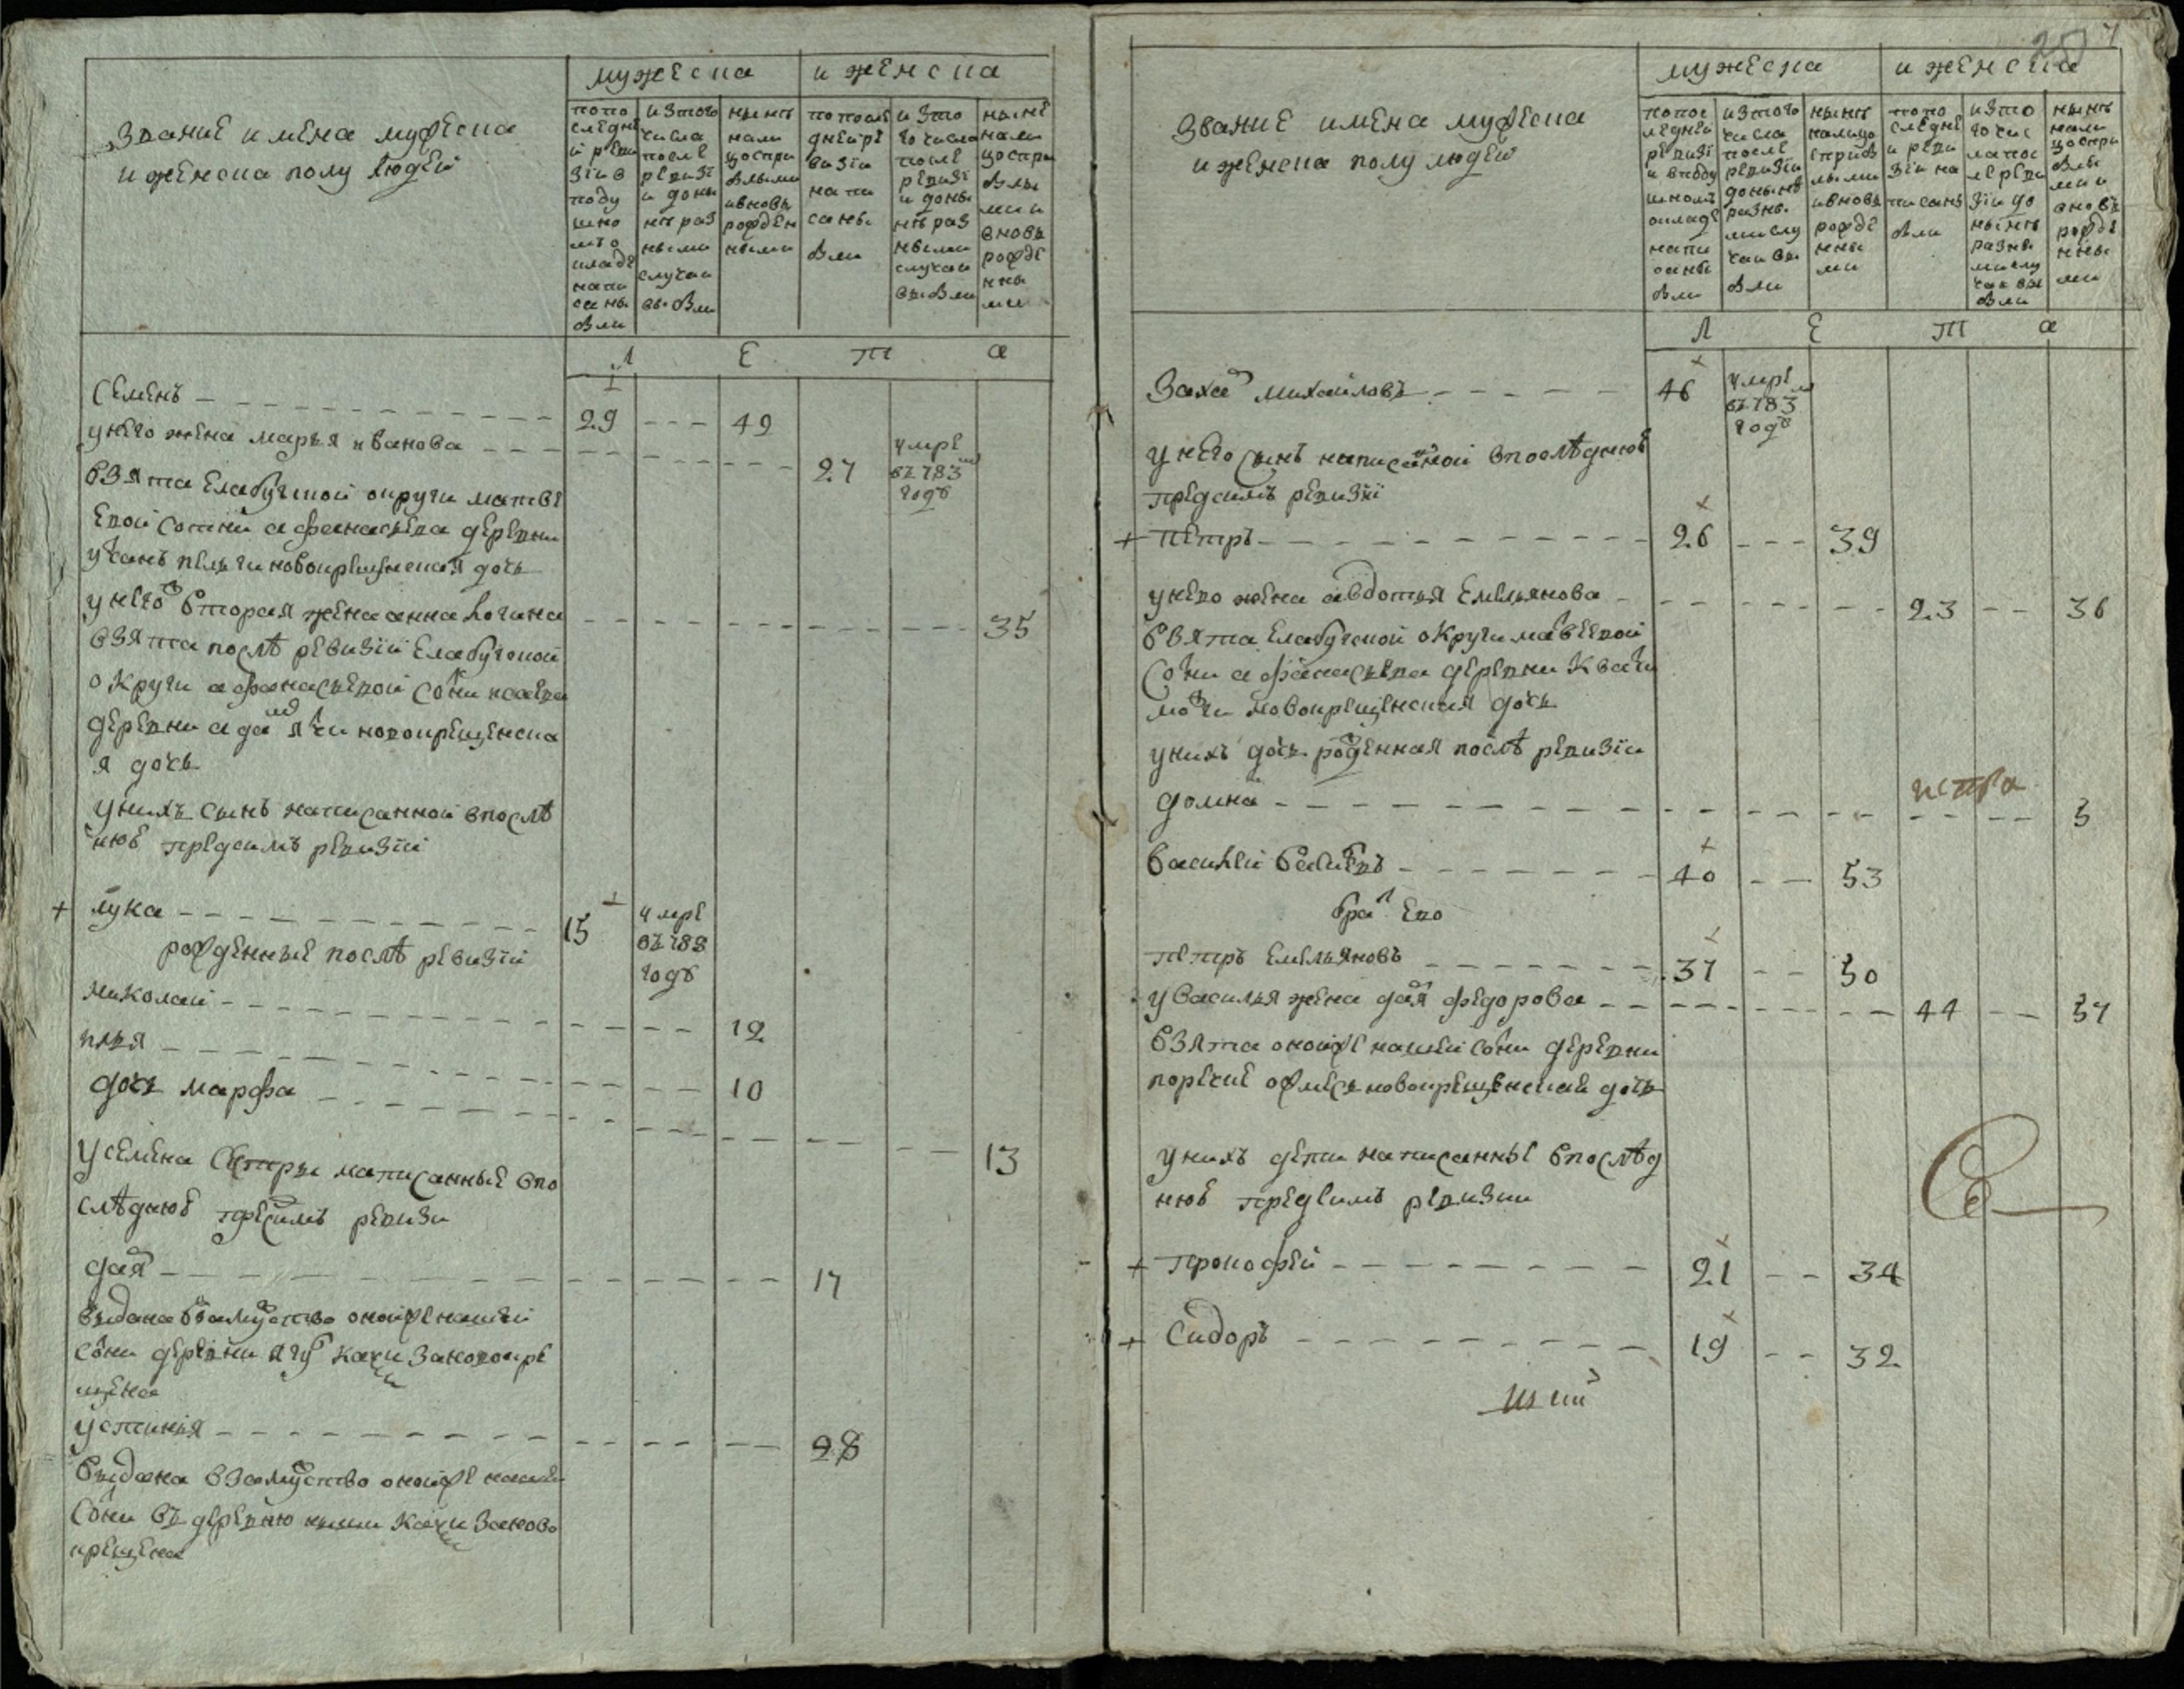 Звание имена мужеска
и женска полу людей
мужеска
и женска
попо
следне
й реви
зіи в
поду
шно
мъ о
кладе
напи
саны
были
изтого
числа
после
ревизі
и доны
нъ раз
ными
случаи
выбыли
нынъ
нали
цо спри
былыми
ивновь
рожден
ными
попосле
дней ре
визіи
напи
саны
были
изто
го числа
после
ревизі
и доны
нъ раз
ными
случаи
выбыли
ныне
нали
цо спри
былы
ми и
вновь
рожде
нны
ми
Л Е Т А
Семенъ 29 49
у него жена марья иванова 27 умре въ 783м годѣ
взята Елабугской округи матве
евой сотни афанасьева деревни
учанъ пельги новокрещенская дочь
у него ж вторая жена анна логина 35
взята послѣ ревизіи Елабугской
округи афанасьевой сотни исаева
деревни новокрещенска
я дочь
у нихъ сынъ написанной в послѣ
днюю предсимъ ревизіи
+ лука 15 умре въ 788 годѣ
рожденные послѣ ревизіи
николай 12
илья 10
дочь марфа 13
у семена сестры написанные в по
слѣднюю предсимъ ревизи
дарья 17
выдана в замужство оной же нашей
сотни деревни ягу какси за новокре
щена
устинья 28
выдана в замужство оной же нашей
сотни въ деревню какси за ново
крещена
7
Звание имена мужеска
и женска полу людей
мужеска
и женска
попос
ледней
ревизі
и вподу
шномъ
окладе
напи
саны
были
изтого
числа
после
ревизіи
донынѣ
разны
ми слу
чаи вы
были
нынъ
налицо
сприбы
лыми
ивновь
рожде
нны
ми
попо
следне
и реви
зіи на
писаны
были
изто
го чис
ла пос
ле реви
зіи до
нынъ
разны
ми слу
чаи вы
были
нынъ
нали
цо спри
былы
ми и
вновь
рожде
нны
ми
Л Е Т а
Захаръ михаиловъ 46 умре въ 783м годѣ
у него сынъ написанной в послѣднюю
предсимъ ревизіи
+ петръ 26 39
у нево жена авдотья Емельянова 23 36
взята Елабугской округи матвеевой
сотни афанасьева деревни квати
мози новокрещенская дочь
у нихъ дочь рожденная послѣ ревизіи
домна 3
василей васильевъ 40 53
братъ ево
петръ Емельяновъ 37 50
у василья жена дарья федорова 44 57
взята оной же нашей сотни деревни
поречие новокрещенская дочь
у нихъ дети написанные в послѣд
нюю предсимъ ревизии
+ прокофей 21 34
+ Сидоръ 19 32